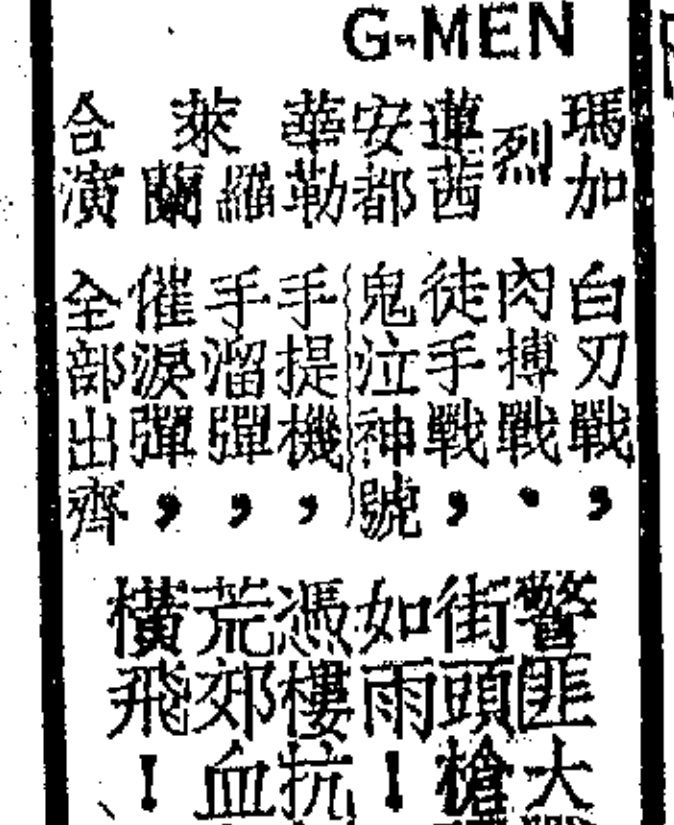 G-MEN
瑪加
烈
蓮茜
安都
華勒
萊
羅
蘭
合演
白刃戰，
肉搏戰、
徒手戰，
鬼泣神號
手提機，
手溜彈，
催淚彈，
全部出齊
警匪大
街頭槍
如雨！
憑樓抗
荒郊血
橫飛！